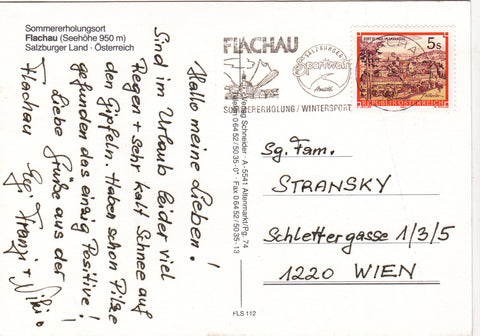 Sommererholungsort
Flachau (Seehöhe 950 m)
Salzburger Land · Österreich
Hallo meine Lieben!
Sind im Urlaub leider viel
Regen + sehr kalt Schnee auf
den Gipfeln. Haben schon Pilze
gefunden das einzig Positive!
Liebe Grüße aus der
Flachau
Franzi + Niki
Verlag Schneider · A-5541 Altenmarkt/Pg. 74
Telefon 0 64 52 / 50 35-0 · Fax 0 64 52 / 50 35 - 13
FLS 112
FLACHAU
SALZBURGER
Sportwelt
Amadé
SOMMERERHOLUNG / WINTERSPORT
5s
REPUBLIK ÖSTERREICH
Sg. Fam.
STRANSKY
Schlettergasse 1/3/5
1220 WIEN